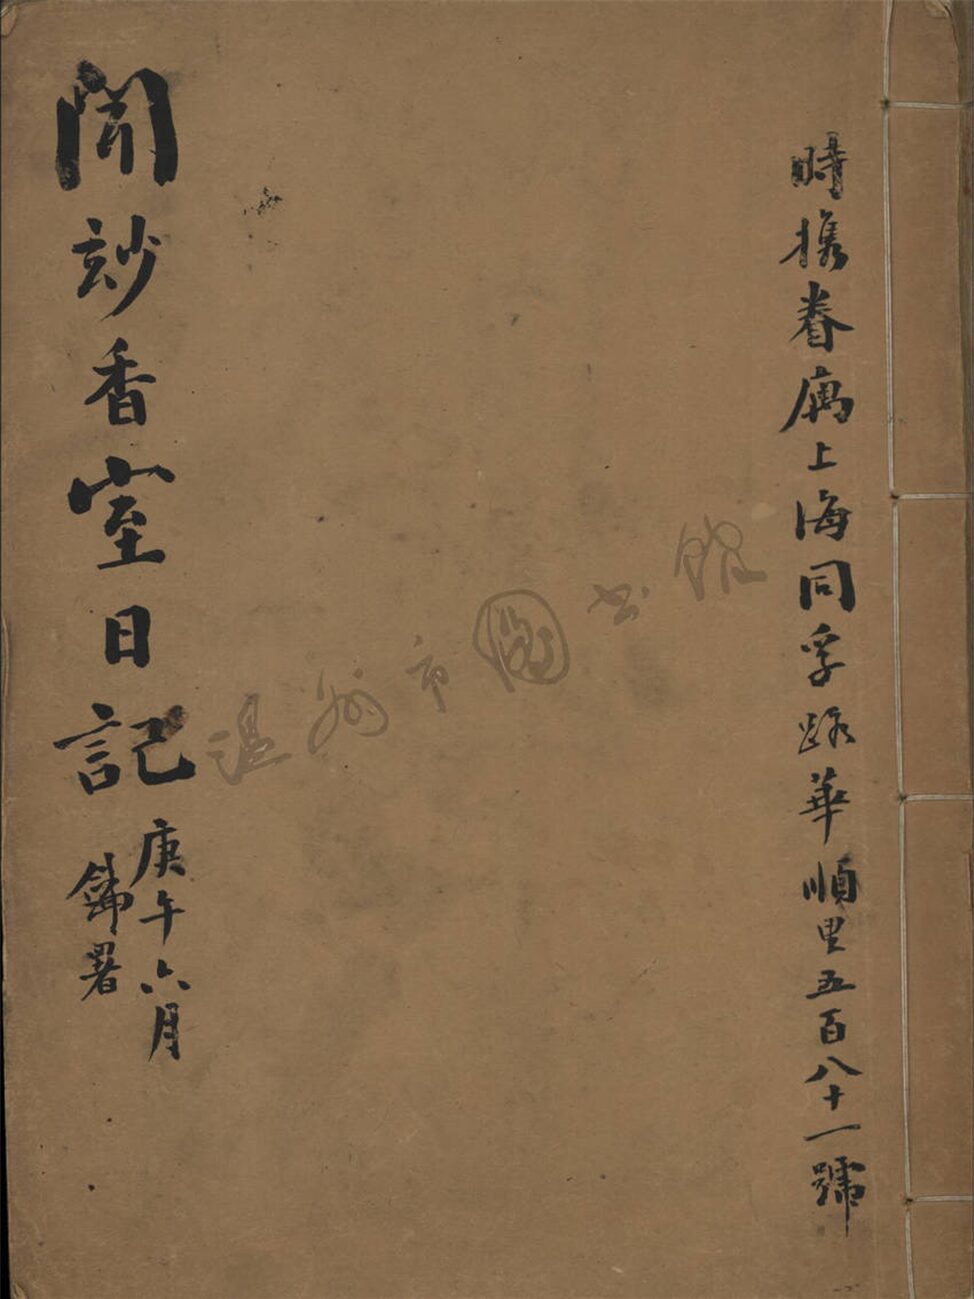 時携眷庽上海同孚路華順里五百八十一號
聞玅香室日記
庚午六月
署
温州市圖书館